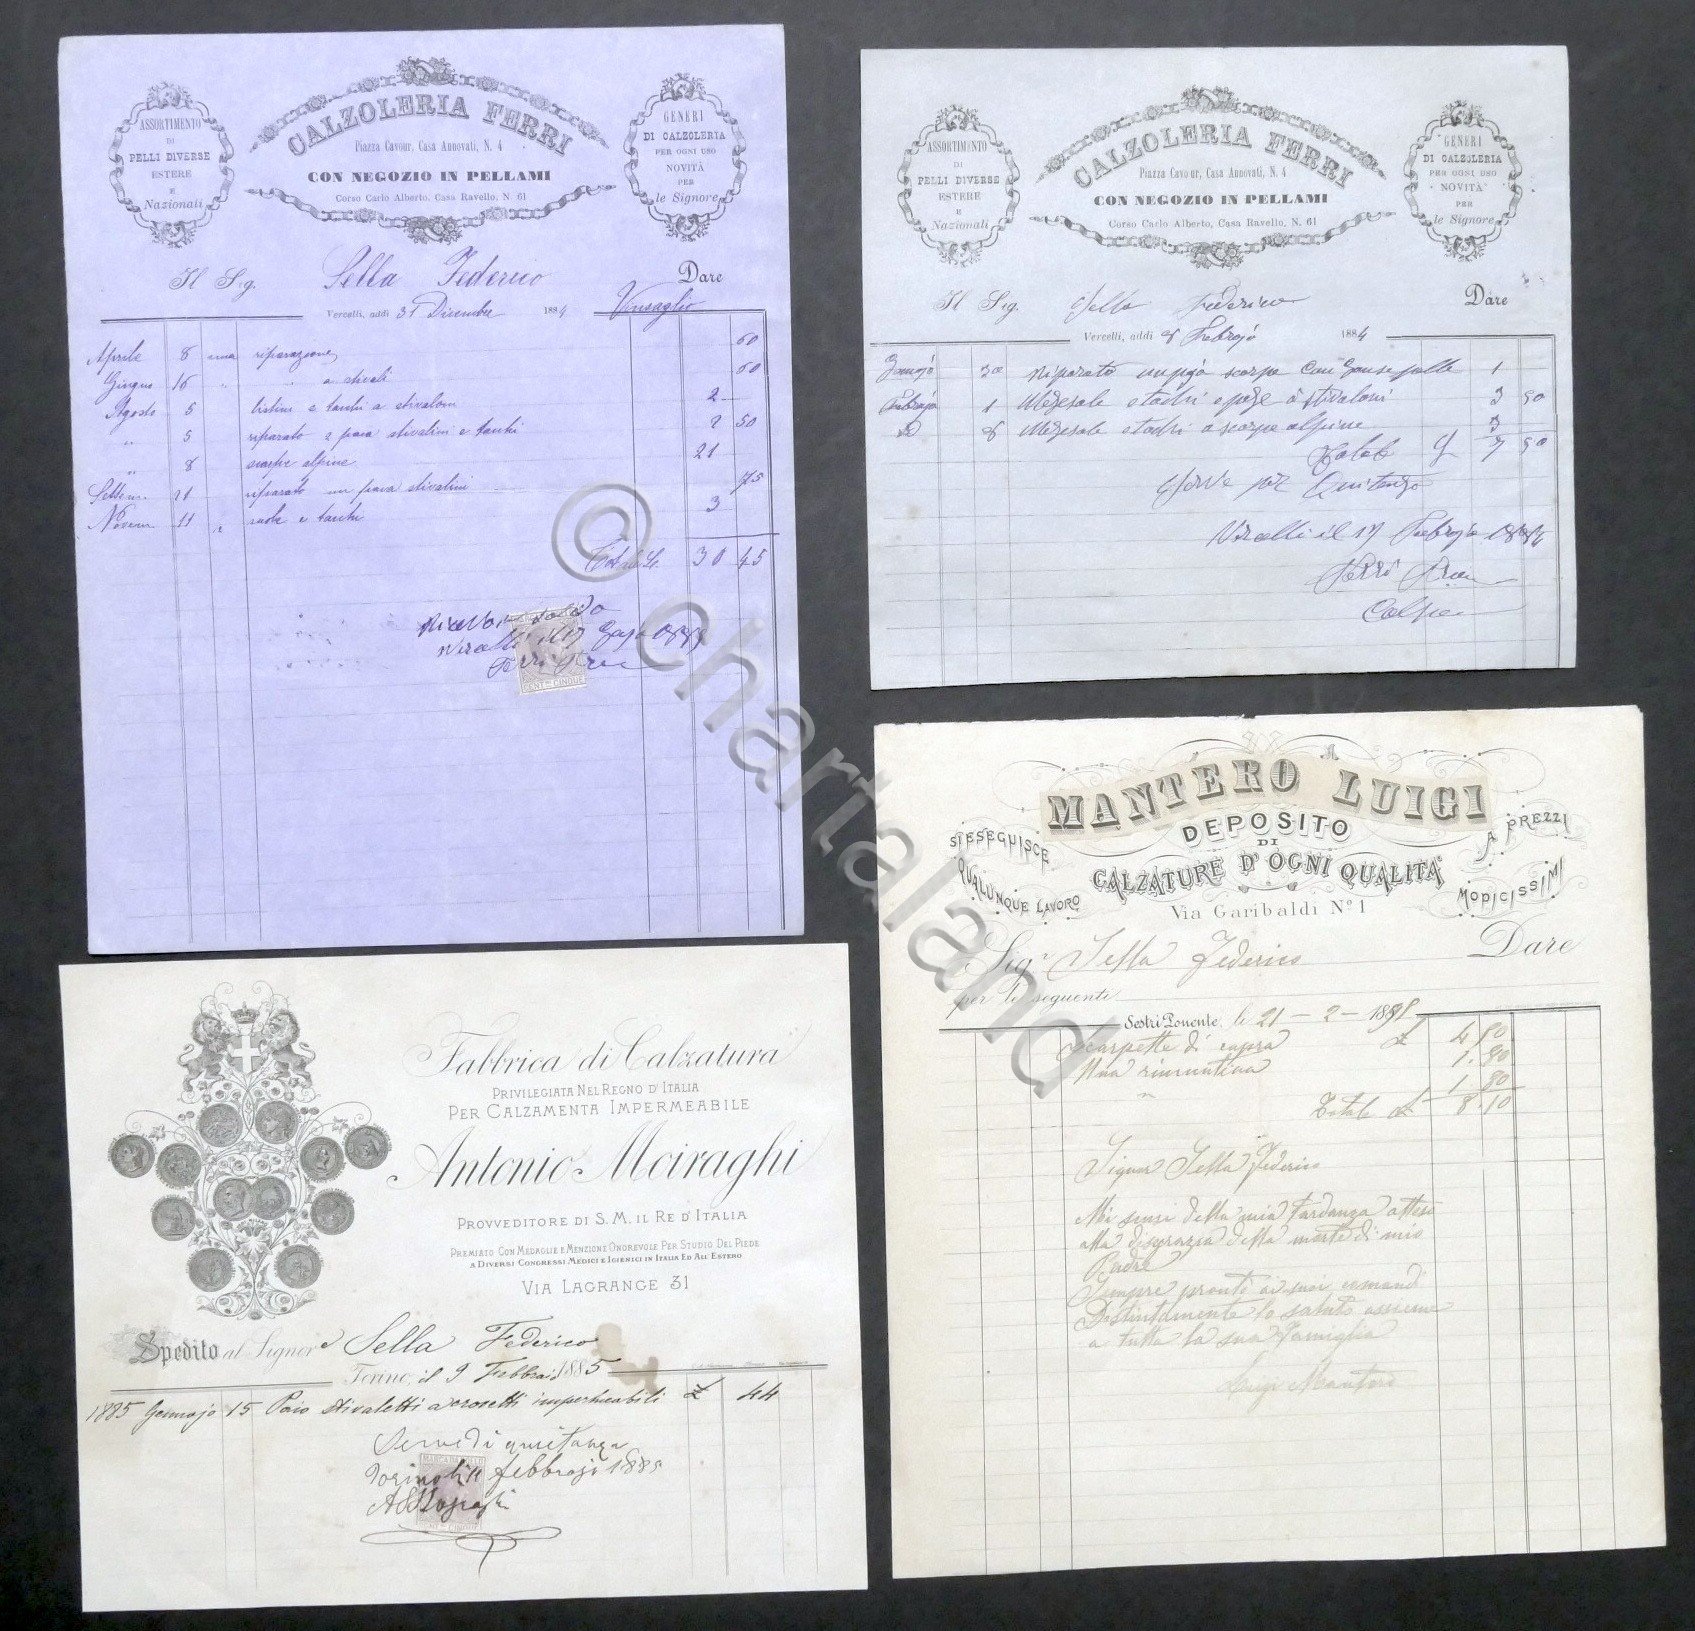 ASSORTIMENTO
DI
PELLI DIVERSE
ESTERE
E
Nazionali
CALZOLERIA FERRI
Piazza Cavour, Casa Annovati, N. 4
CON NEGOZIO IN PELLAMI
Corso Carlo Alberto, Casa Ravello, N. 61
GENERI
DI CALZOLERIA
PER OGNI USO
NOVITÀ
PER
le Signore
Il Sig. Sella Federico Dare
Vercelli, addi 31 Dicembre 1884
Aprile 8 una riparazione 60
Giugno 16 " " a stivali 60
Agosto 5 tacchi a stivaloni 2
" 5 riparato 2 paia stivalini e tacchi 2 50
" 8 scarpe alpine 21
Settem. 21 riparato un paia stivalini 75
Novem. 11 suole e tacchi 3
Totale L. 30 45
Vercelli il 17
Ferri
CENT. MI CINQUE
ASSORTIMENTO
DI
PELLI DIVERSE
ESTERE
E
Nazionali
CALZOLERIA FERRI
Piazza Cavour, Casa Annovati, N. 4
CON NEGOZIO IN PELLAMI
Corso Carlo Alberto, Casa Ravello, N. 61
GENERI
DI CALZOLERIA
PER OGNI USO
NOVITÀ
PER
le Signore
Il Sig. Sella Federico Dare
Vercelli, addi 8 Febrajo 1884
30 Riparato scarpe 1
Febrajo 1 3 50
8 scarpe alpine 3
Totale 7 50
per Quitanza
Vercelli il 17 Febrajo 1884
Ferri
MANTERO LUIGI
DEPOSITO
DI
CALZATURE D'OGNI QUALITÀ
SI ESEGUISCE
QUALUNQUE LAVORO
A PREZZI
MODICISSIMI
Via Garibaldi No. 1
Sigr. Sella Federico Dare
per le seguenti
Sestri Ponente, le 21 - 2 - 1898
Scarpette di capra £ 4 50
Una rimontina 1.80
" 1 80
Totale £ 8.10
Signor Sella Federico
Mi scusi della mia tardanza atteso
alla disgrazia della morte di mio
Padre
Sempre pronto ai suoi comandi
Distintamente lo saluto assieme
a tutta la sua Famiglia
Luigi Mantero
Fabbrica di Calzatura
PRIVILEGIATA NEL REGNO D'ITALIA
PER CALZAMENTA IMPERMEABILE
Antonio Moiraghi
PROVVEDITORE DI S. M. IL RE D'ITALIA
PREMIATO CON MEDAGLIE E MENZIONE ONOREVOLE PER STUDIO DEL PIEDE
A DIVERSI CONGRESSI MEDICI E IGIENICI IN ITALIA ED ALL'ESTERO
VIA LAGRANGE 31
Spedito al Signore Sella Federico
Torino, il 9 Febbraio 1885
1885 Gennajo 15 Paio Stivaletti a crosetti impermeabili £ 44
Serve di quietanza
Torino li 11 febbrajo 1885
A. Moiraghi
© chartaland